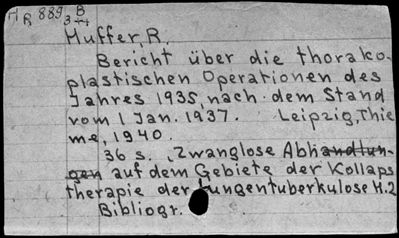 HR 889, B
3+4
Huffer, R.
Bericht über die thorako-
plastischen Operationen des
Jahres 1935, nach dem Stand
vom 1 Jan. 1937. Leipzig, Thie
me, 1940.
36 s. „Zwanglose Abhandlun-
gen auf dem Gebiete der Kollaps
therapie der Lungentuberkulose H.2
Bibliogr.